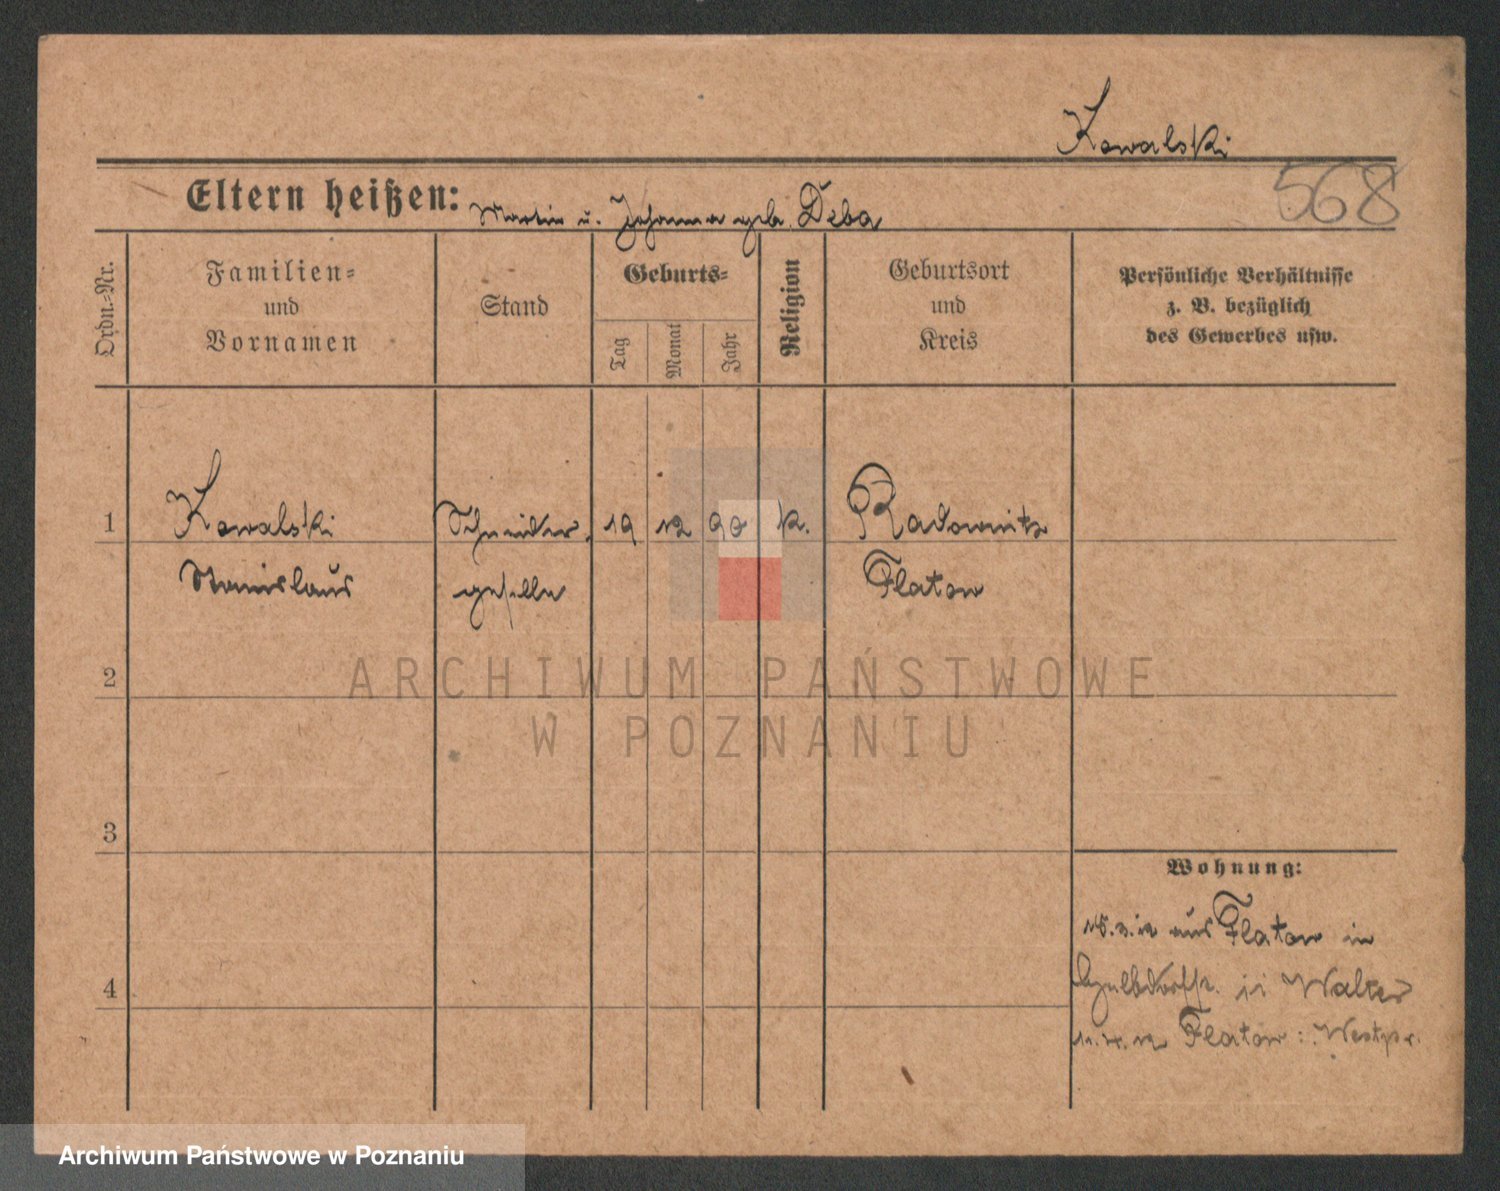 Kowalski
Eltern heißen: Martin u. Johanna geb. Deba
568
Ordn.-Nr.
Familien-
und
Vornamen
Stand
Geburts-
Tag
Monat
Jahr
Religion
Geburtsort
und
Kreis
Persönliche Verhältnisse
z. B. bezüglich
des Gewerbes usw.
1
Kowalski
Stanislaus
Schneider
geselle
19
12
90
k.
Radawnitz
Flatow
ARCHIWUM PAŃSTWOWE
W POZNANIU
2
3
4
Wohnung:
aus Flatow in
11 Walter
Flatow Westpr.
Archiwum Państwowe w Poznaniu